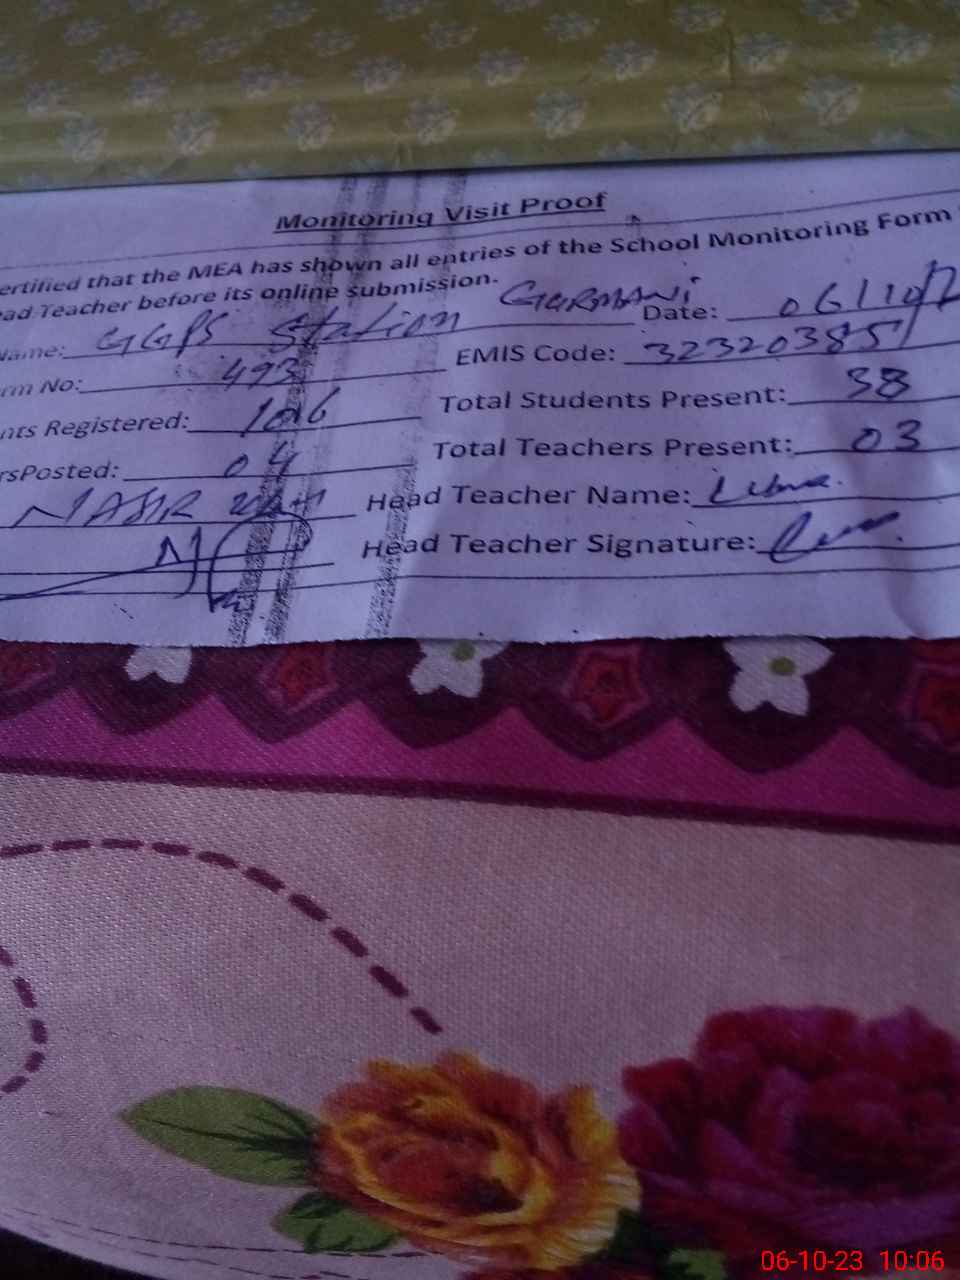 Monitoring Visit Proof
ertified that the MEA has shown all entries of the School Monitoring Form
ead Teacher before its online submission.
Name: GGPS Station GURMANi Date: 06/10/
rm No: 493 EMIS Code: 32320385
nts Registered: 106 Total Students Present: 38
rsPosted: 04 Total Teachers Present: 03
NASIR Head Teacher Name:
Head Teacher Signature:
06-10-23 10:06